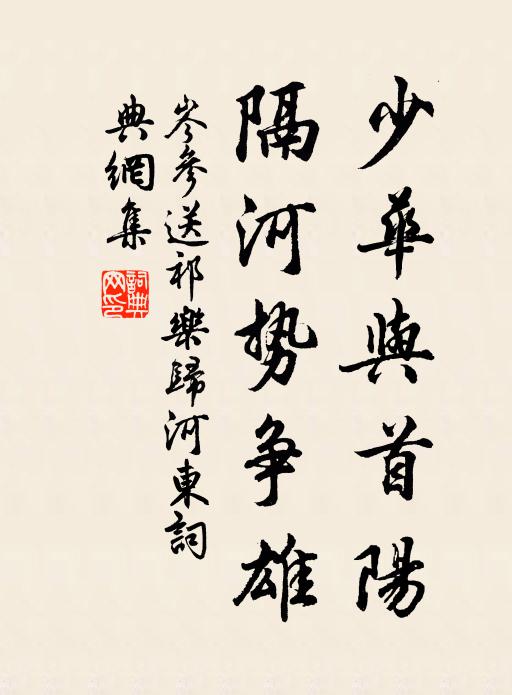 少華與首陽
隔河势争雄
岑參送祁樂歸河東詞
典網集
詞典网印